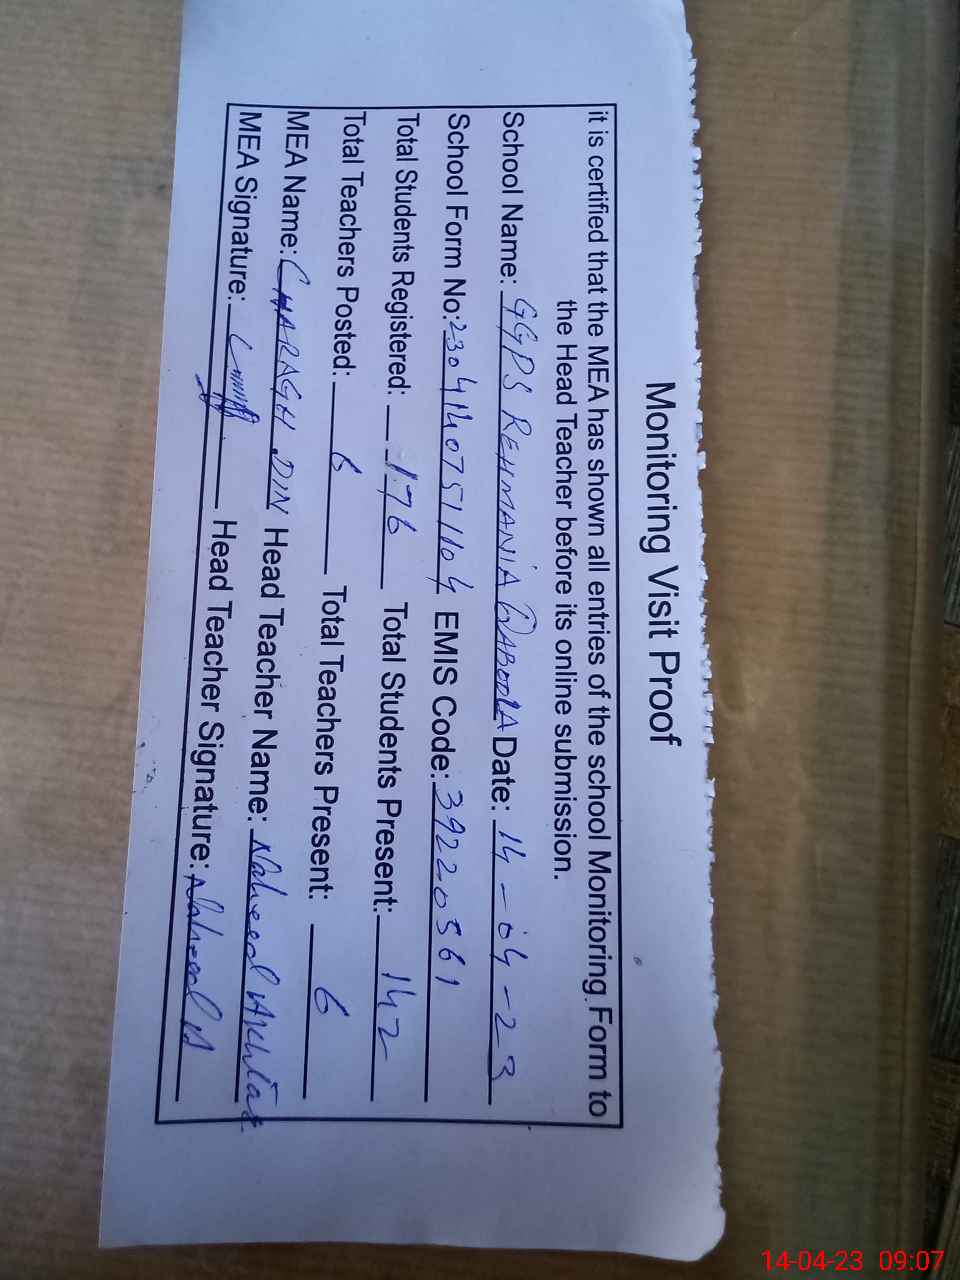 Monitoring Visit Proof
it is certified that the MEA has shown all entries of the school Monitoring Form to
the Head Teacher before its online submission.
School Name: GGPS REHMANIA QABOOLA Date: 14-04-23
School Form No: 23041407511104 EMIS Code: 39220561
Total Students Registered: 176 Total Students Present: 142
Total Teachers Posted: 6 Total Teachers Present: 6
MEA Name: CHARAGH DIN Head Teacher Name: Naheed Akhtar
MEA Signature: Head Teacher Signature: Naheed A
14-04-23 09:07